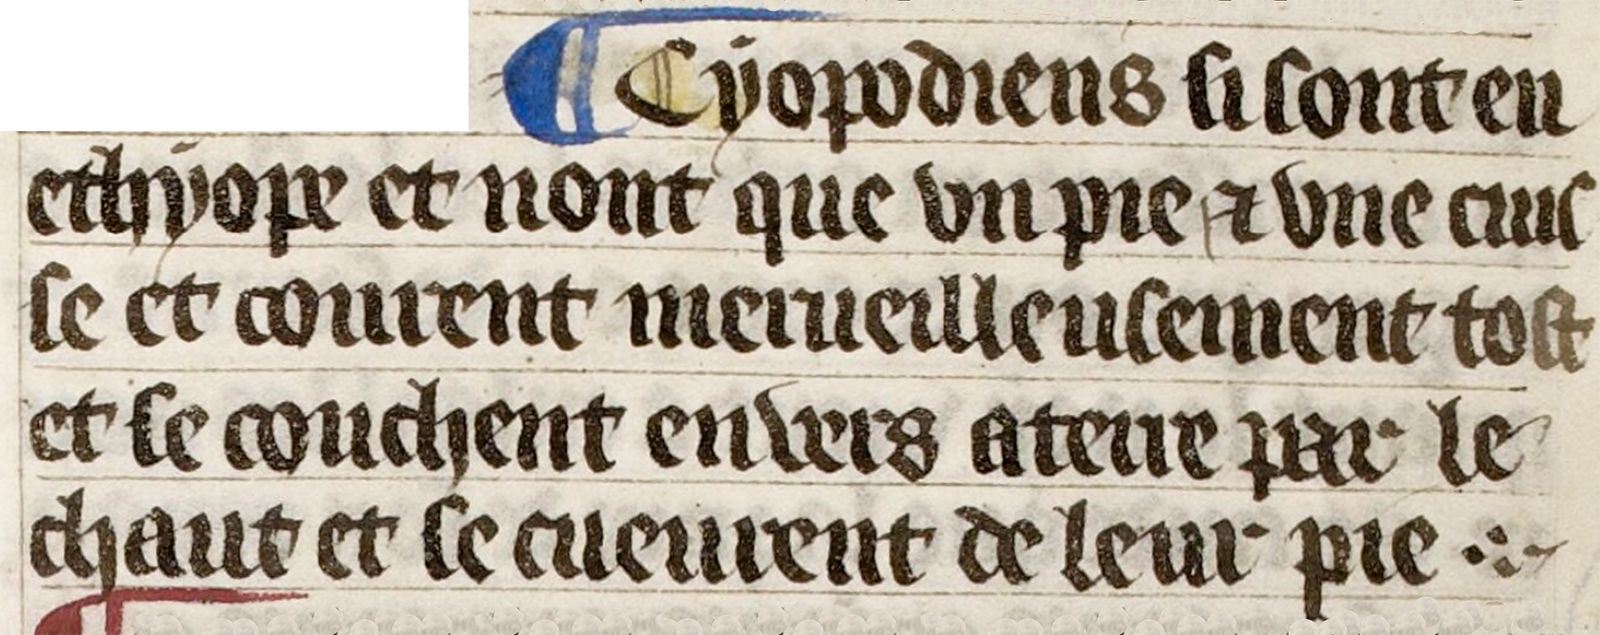 ¶ Cyopodiens si sont en
ethyope et nont que vn pie ⁊ vne cuis
se et courent merueilleusement tost
et se couchent enuers aterre par le
chaut et se cueuurent de leur pie